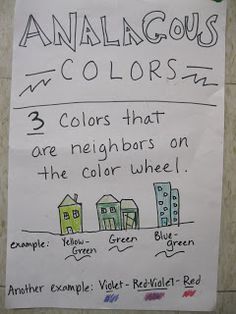 ANALAGOUS
COLORS
3 Colors that
are neighbors on
the color wheel.
example: Yellow-Green Green Blue-green
Another example: Violet-Red-Violet-Red